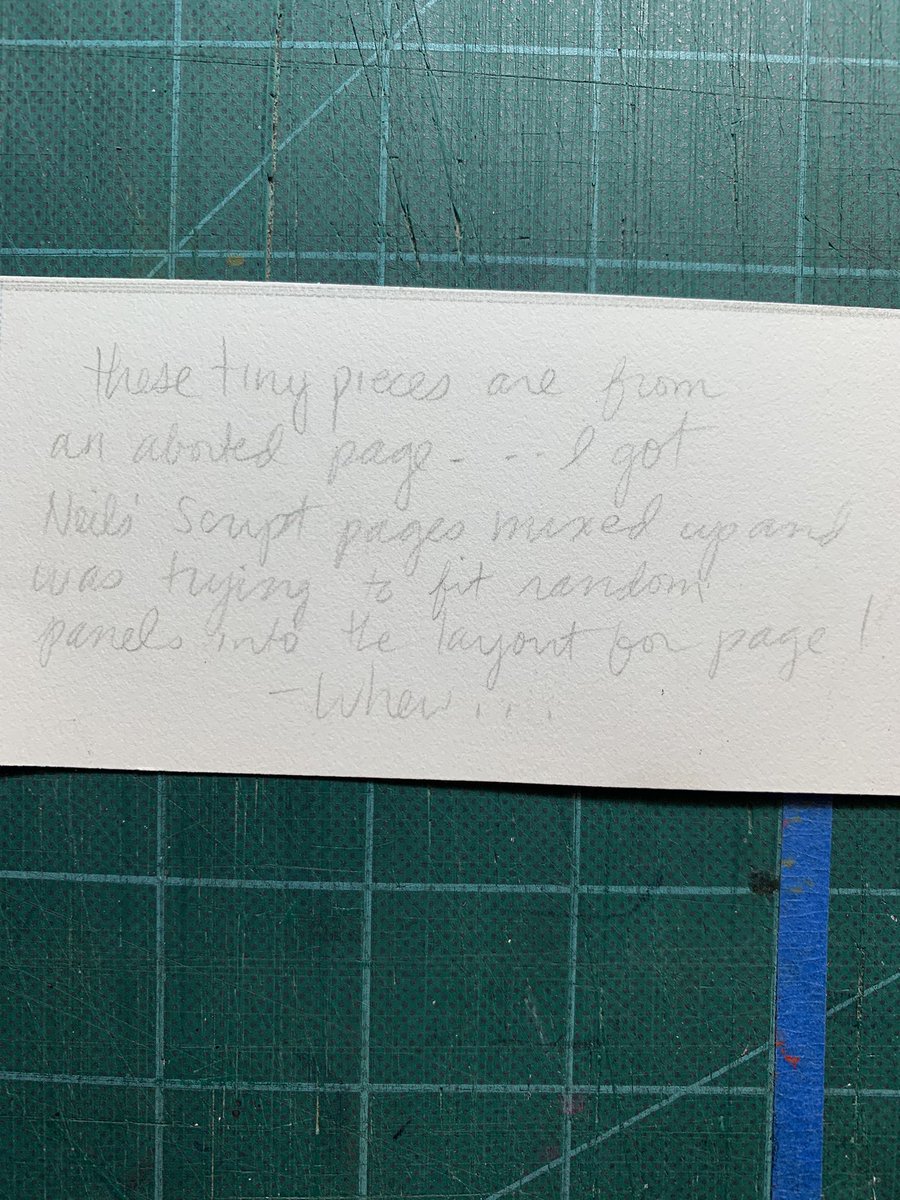 these tiny pieces are from
an aborted page - - - I got
Neils' Script pages mixed up and
was trying to fit random
panels into the layout for page !
- Whew . . .